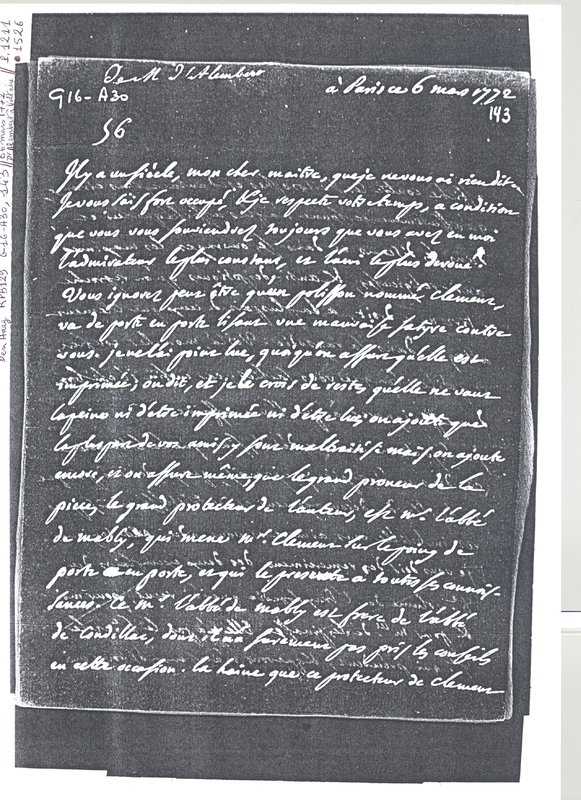 De M. D'Alembert
G16-A30
à Paris ce 6 mars 1772
143
56
Il y a un siècle, mon cher maitre, que je ne vous ai rien dit.
Je vous sais fort occupé & je respecte votre temps, a condition
que vous vous souviendrez toujours que vous avez en moi
l'admirateur le plus constant, et l'ami le plus devoué.
Vous ignorez peut être qu'un polisson nommé Clement,
va de porte en porte lisant une mauvaise satyre contre
vous. je ne l'ai point lue, quoiqu'on assure qu'elle est
imprimée; on dit, et je le crois de reste, qu'elle ne vaut
la peine ni d'etre imprimée ni d'etre lue; on ajoute que
la plupart de vos amis y sont maltraités; mais on ajoute
encore, et on assure même, que le grand proneur de la
piece, le grand protecteur de l'auteur, est mr. l'abbé
de mably, qui mene mr. Clement sur le poing de
porte en porte, et qui le presente à toutes ses connois-
sances. Ce mr. l'abbé de mably est frere de l'abbé
de Condillac, dont il n'a surement pas pris les conseils
en cette occasion. la haine que ce protecteur de Clement
Den Haag KPB129 G-16-A30, 143 // 06 mars 1772 // D'Alembert à Voltaire // I.1211